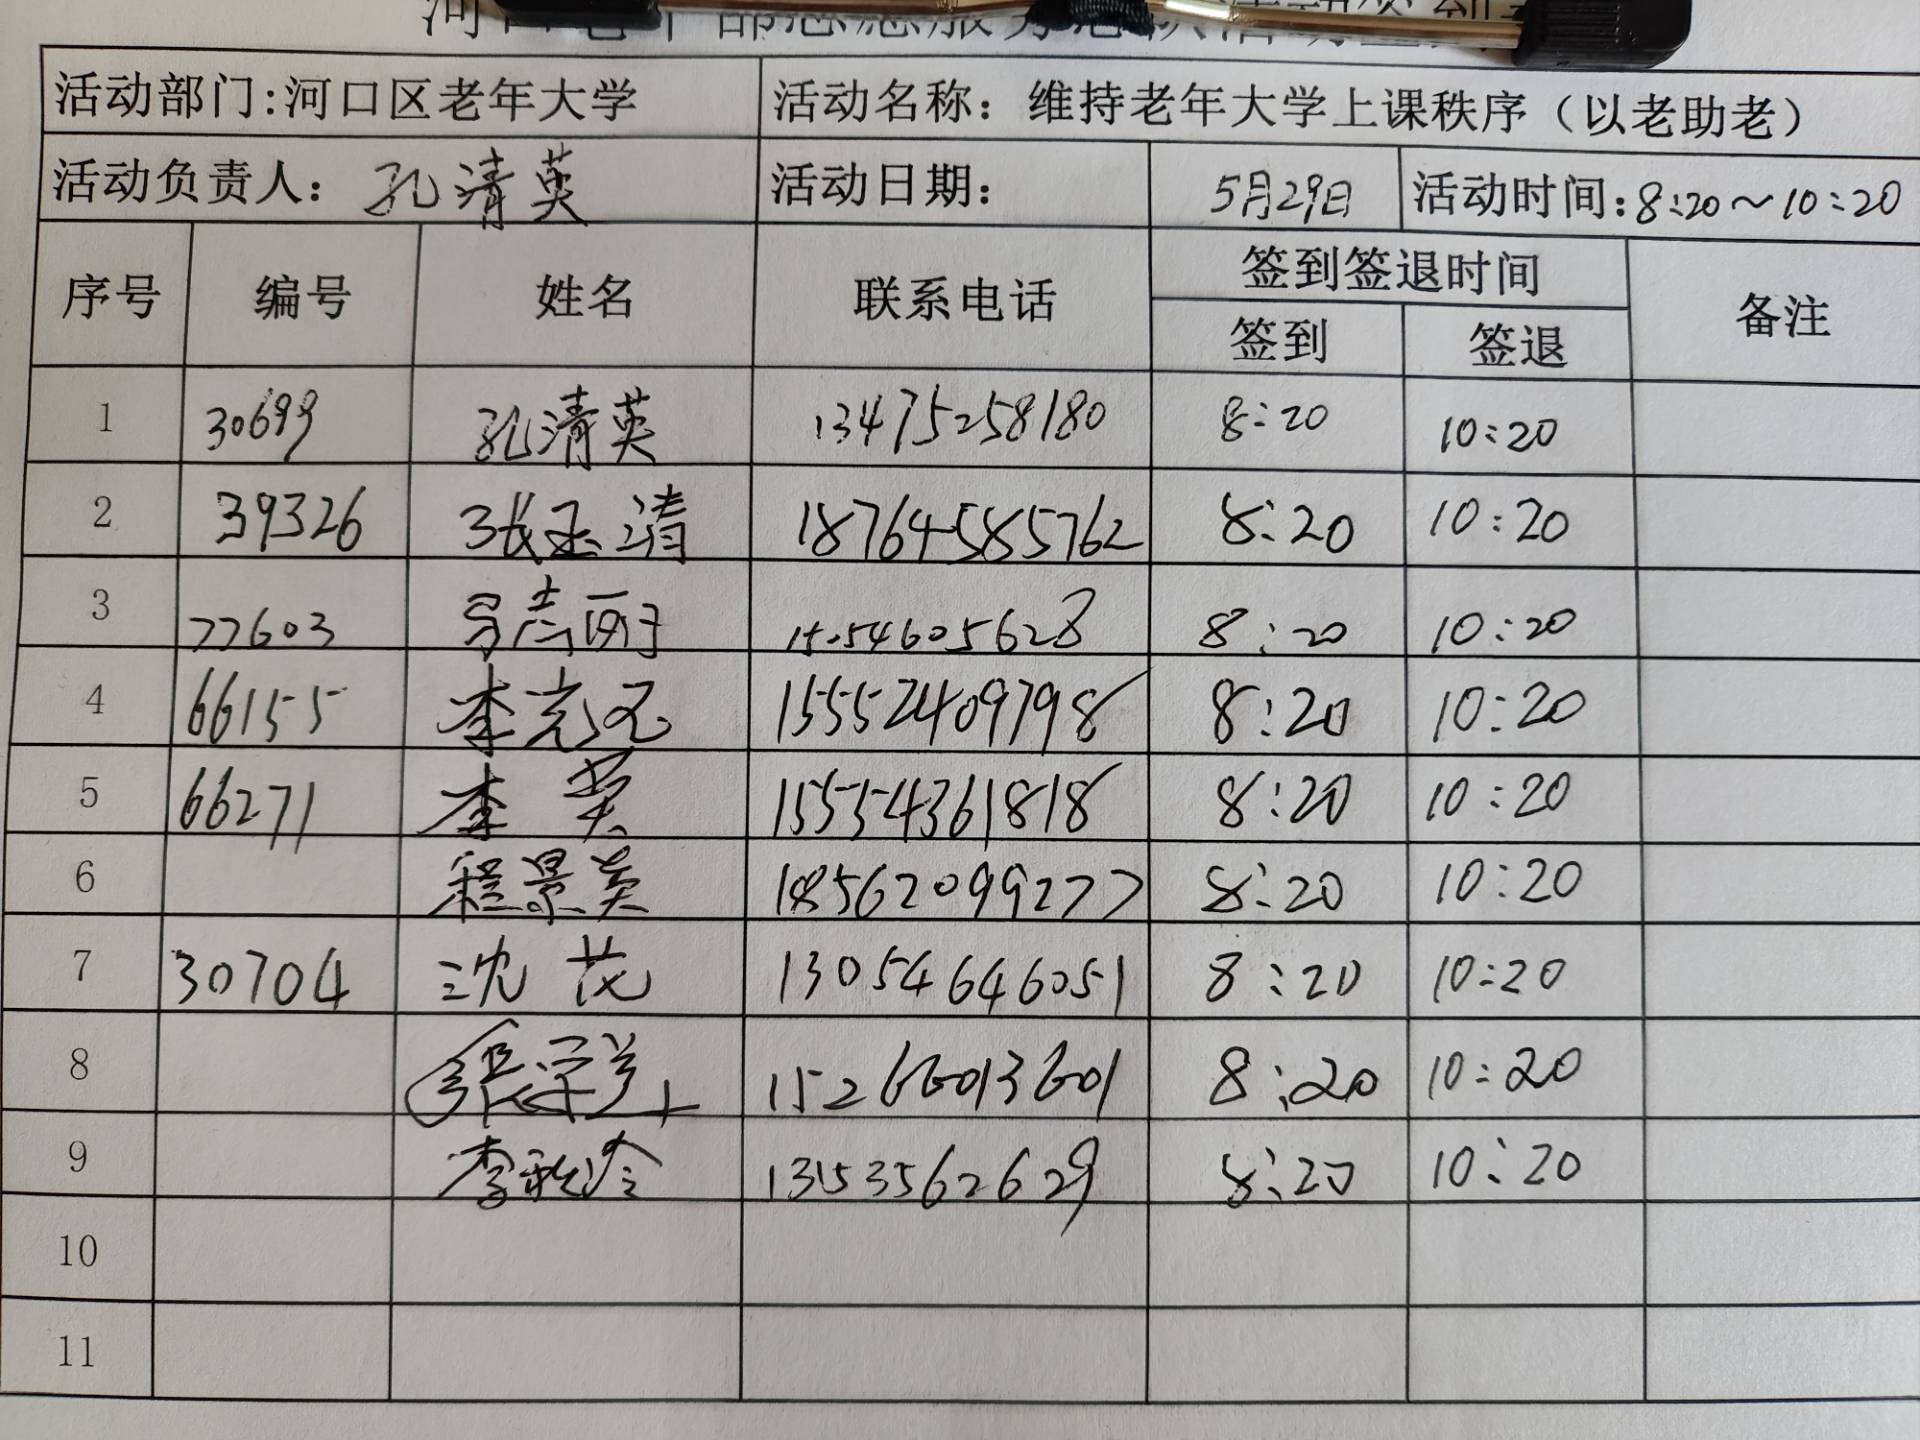 活动部门:河口区老年大学 活动名称：维持老年大学上课秩序（以老助老）
活动负责人：孔清英 活动日期： 5月29日 活动时间:8:20～10:20
序号 编号 姓名 联系电话 签到签退时间 备注
签到 签退
1 30699 孔清英 13475258180 8:20 10:20
2 39326 张玉清 18764585762 8:20 10:20
3 77603 15054605628 8:20 10:20
4 66155 李克玉 15552409798 8:20 10:20
5 66271 李荣 15554361818 8:20 10:20
6 程景英 18562099277 8:20 10:20
7 30704 沈花 13054646051 8:20 10:20
8 15266013601 8:20 10:20
9 李秋玲 13153562629 8:20 10:20
10
11